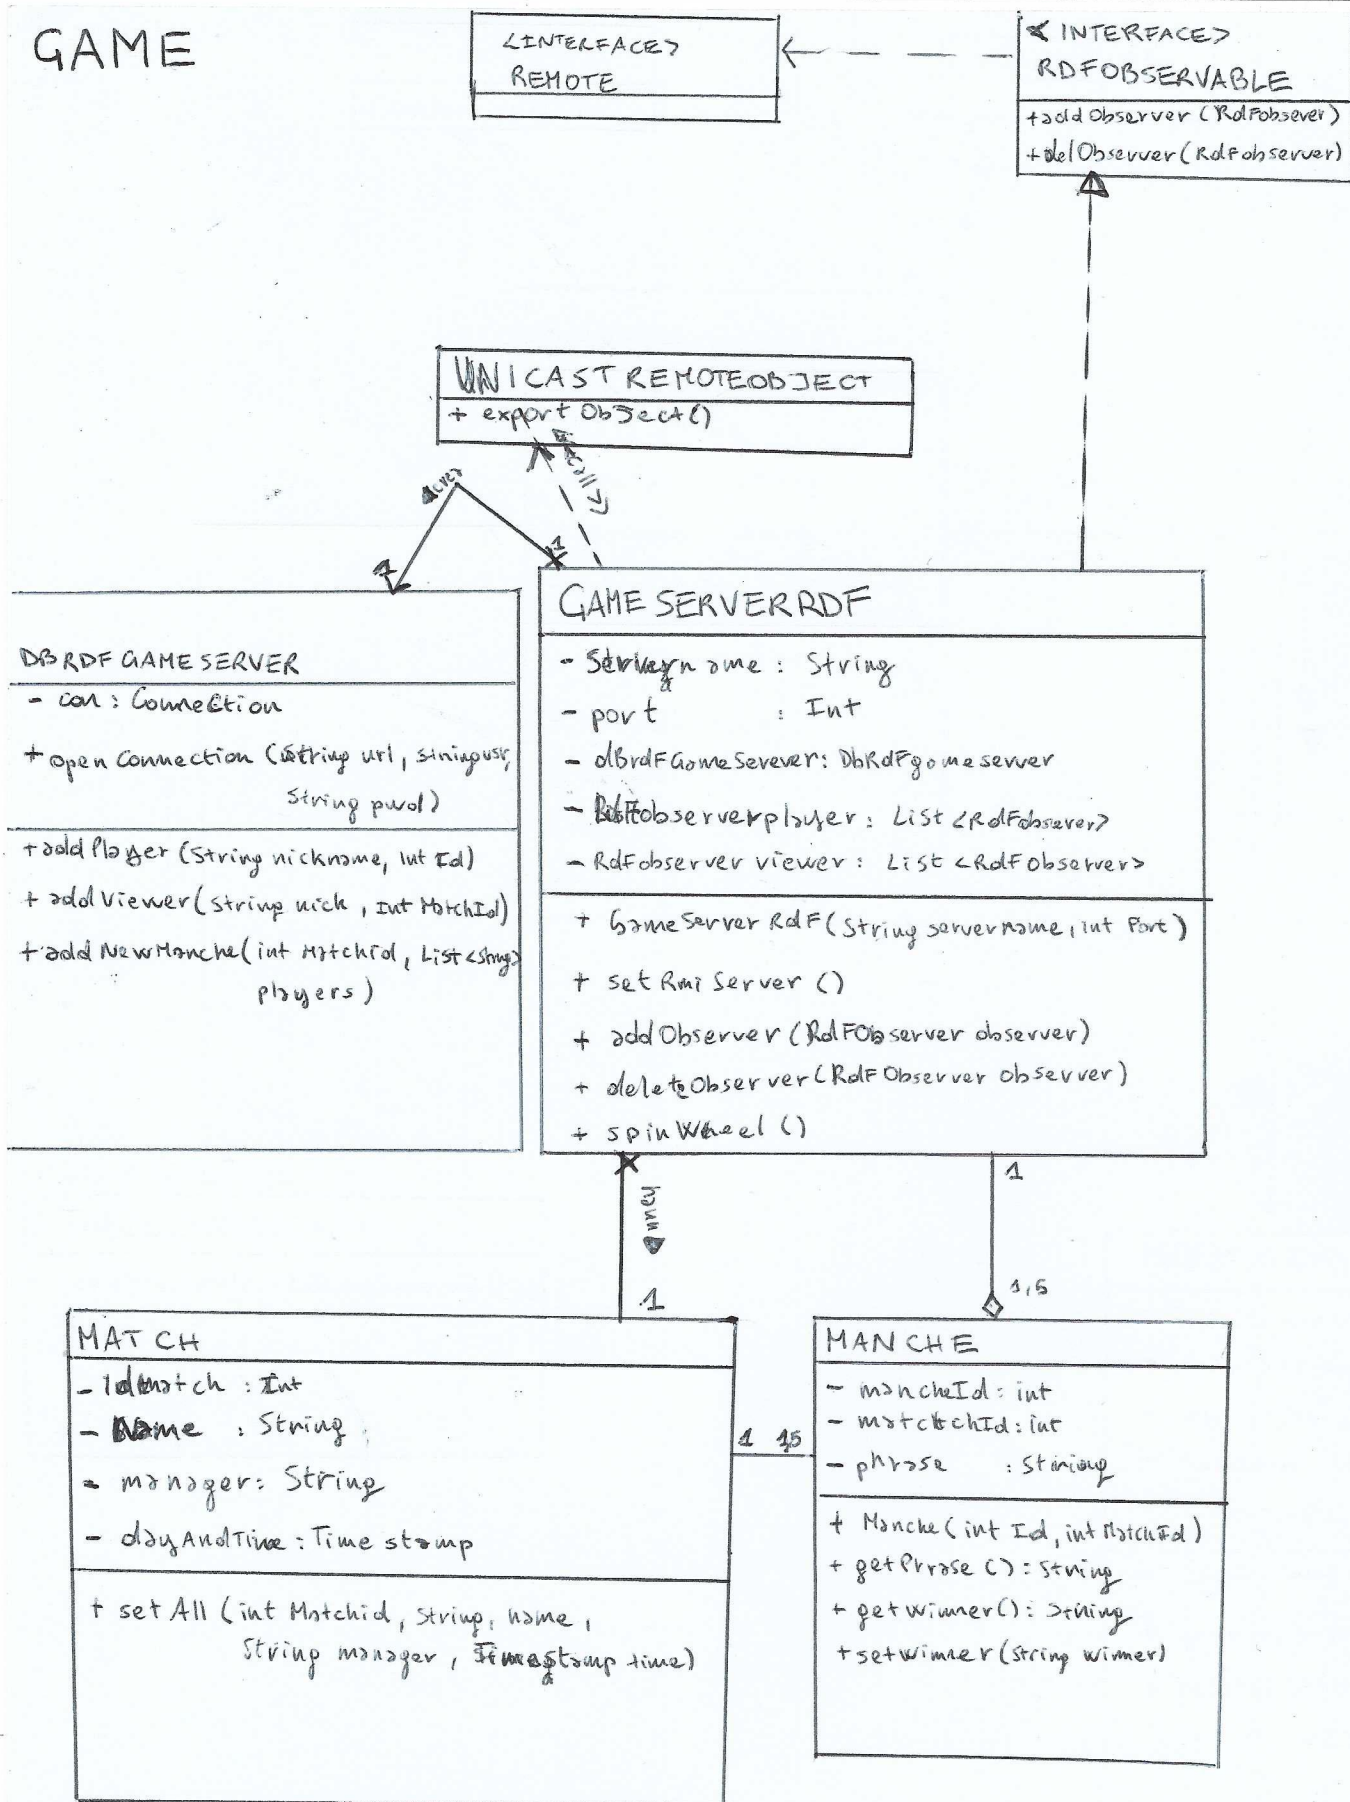 GAME
<INTERFACE>
REMOTE
< INTERFACE>
RDFOBSERVABLE
+addObserver (RdFobsever)
+delObserver(RdFobserver)
UNICASTREMOTEOBJECT
+ exportObject()
call>>
1
1
DBRDFGAMESERVER
- con: Connection
+ open Connection (String url, Stiningusr,
String pwd)
+addPlayer (String nickname, Int Id)
+ addViewer(String nick, Int MatchId)
+addNewManche(int Matchid, List<String>
players)
GAMESERVERRDF
- name: String
- port : Int
- dBrdFGameServever: DbRdFgameserver
- observerplayer: List <RdFobsever>
- RdFobserver viewer: List <RdFObserver>
+ GameServerRdF(String servername, int Port)
+ setRmiServer ()
+ addObserver (RdFObserver observer)
+ deleteObserver(RdFObserver observer)
+ spinWheel ()
1
1
1,5
MATCH
- Idmatch : Int
- Name : String
- manager: String
- dayAndTime: Timestamp
+ setAll (int Matchid, String, name,
String manager, Timestamp time)
1 1,5
MANCHE
- mancheId: int
- matchchId: int
- phrase : Striong
+ Manche(int Id, int MatchId)
+ getPhrase (): String
+ getwinner(): String
+setwinner(String winner)